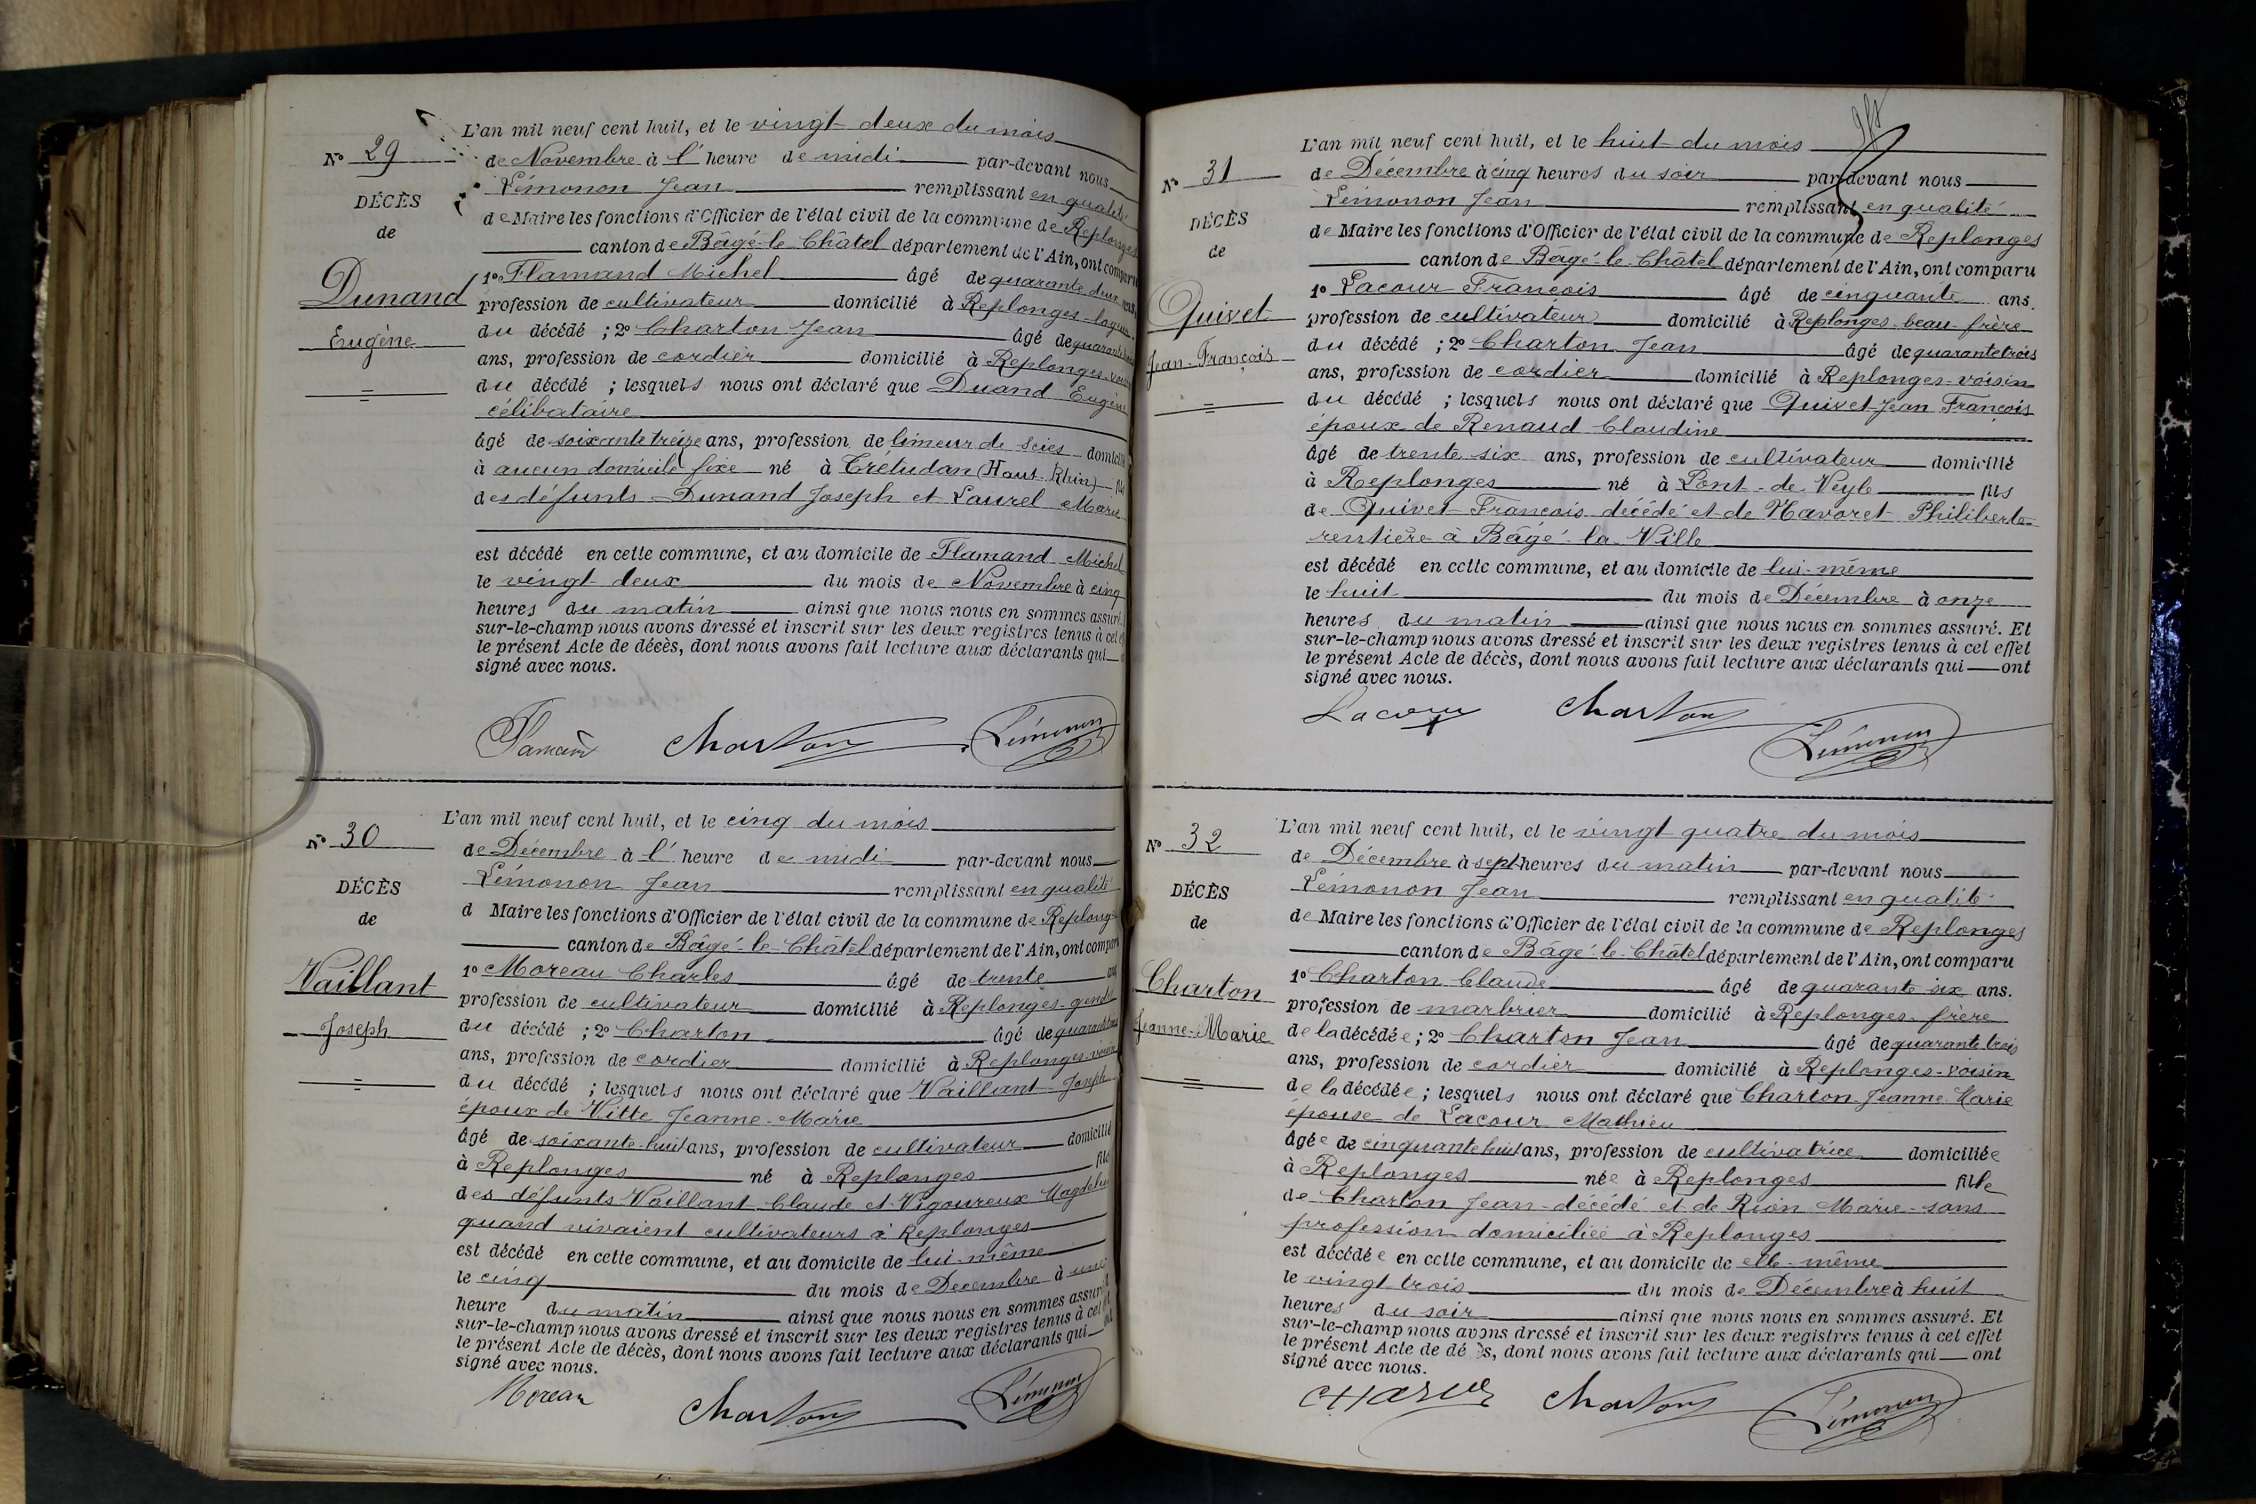 N° 29
DÉCÈS
de
Dunand
Eugène
L'an mil neuf cent huit, et le vingt deux du mois
de Novembre à l'heure de midi par-devant nous
Lémonon Jean remplissant en qualité
de Maire les fonctions d'Officier de l'état civil de la commune de Replonges
canton de Bâgé-le-Châtel département de l'Ain, ont comparu
1° Flamand Michel âgé de quarante deux ans,
profession de cultivateur domicilié à Replonges-logeur
du décédé ; 2° Charton Jean âgé de quarante trois
ans, profession de cordier domicilié à Replonges-voisin
du décédé ; lesquels nous ont déclaré que Duand Eugène
célibataire
âgé de soixante treize ans, profession de limeur de scies domicilié
à aucun domicile fixe né à Trétudan (Haut-Rhin) fils
des défunts Dunand Joseph et Laurel Marie
est décédé en cette commune, et au domicile de Flamand Michel
le vingt deux du mois de Novembre à cinq
heures du matin ainsi que nous nous en sommes assuré.
sur-le-champ nous avons dressé et inscrit sur les deux registres tenus à cet
le présent Acte de décès, dont nous avons fait lecture aux déclarants qui
signé avec nous.
Flamand Charton Lémonon
N° 30
DÉCÈS
de
Vaillant
Joseph
L'an mil neuf cent huit, et le cinq du mois
de Décembre à l'heure de midi par-devant nous
Lémonon Jean remplissant en qualité
d Maire les fonctions d'Officier de l'état civil de la commune de Replong
canton de Bâgé-le-Châtel département de l'Ain, ont comparu
1° Moreau Charles âgé de trente ans
profession de cultivateur domicilié à Replonges-gendre
du décédé ; 2° Charton âgé de quarante trois
ans, profession de cordier domicilié à Replonges-voisin
du décédé ; lesquels nous ont déclaré que Vaillant Joseph
époux de Vitte Jeanne-Marie
âgé de soixante-huit ans, profession de cultivateur domicilié
à Replonges né à Replonges fils
des défunts Vaillant Claude et Vigoureux Magdelei
quand vivaient cultivateurs à Replonges
est décédé en cette commune, et au domicile de lui-même
le cinq du mois de Decembre à une
heure du matin ainsi que nous nous en sommes assuré
sur-le-champ nous avons dressé et inscrit sur les deux registres tenus à cet
le présent Acte de décès, dont nous avons fait lecture aux déclarants qui ont
signé avec nous.
Moreau Charton Lémonon
N° 31
DÉCÈS
de
Quivet
Jean-François
L'an mil neuf cent huit, et le huit du mois
de Décembre à cinq heures du soir par-devant nous
Lémonon Jean remplissant en qualité
de Maire les fonctions d'Officier de l'état civil de la commune de Replonges
canton de Bâgé-le-Châtel département de l'Ain, ont comparu
1° Lacour François âgé de cinquante ans.
profession de cultivateur domicilié à Replonges-beau-frère
du décédé ; 2° Charton Jean âgé de quarante trois
ans, profession de cordier domicilié à Replonges-voisin
du décédé ; lesquels nous ont déclaré que Quivet Jean François
époux de Renaud Claudine
âgé de trente six ans, profession de cultivateur domicilié
à Replonges né à Pont-de-Veyle fils
de Quivet François décédé et de Navoret Philiberte
rentière à Bâgé-la-Ville
est décédé en cette commune, et au domicile de lui-même
le huit du mois de Décembre à onze
heures du matin ainsi que nous nous en sommes assuré. Et
sur-le-champ nous avons dressé et inscrit sur les deux registres tenus à cet effet
le présent Acte de décès, dont nous avons fait lecture aux déclarants qui ont
signé avec nous.
Lacour Charton Lémonon
N° 32
DÉCÈS
de
Charton
Jeanne-Marie
L'an mil neuf cent huit, et le vingt quatre du mois
de Décembre à sept heures du matin par-devant nous
Lémonon Jean remplissant en qualité
de Maire les fonctions d'Officier de l'état civil de la commune de Replonges
canton de Bâgé-le-Châtel département de l'Ain, ont comparu
1° Charton Claude âgé de quarante six ans.
profession de marbrier domicilié à Replonges-frère
de la décédée ; 2° Charton Jean âgé de quarante trois
ans, profession de cordier domicilié à Replonges-voisin
de la décédée ; lesquels nous ont déclaré que Charton Jeanne Marie
épouse de Lacour Mathieu
âgée de cinquante huit ans, profession de cultivatrice domiciliée
à Replonges née à Replonges fille
de Charton Jean décédé et de Rion Marie-sans
profession domiciliée à Replonges
est décédée en cette commune, et au domicile de elle-même
le vingt trois du mois de Décembre à huit
heures du soir ainsi que nous nous en sommes assuré. Et
sur-le-champ nous avons dressé et inscrit sur les deux registres tenus à cet effet
le présent Acte de dé s, dont nous avons fait lecture aux déclarants qui ont
signé avec nous.
Charton Lémonon